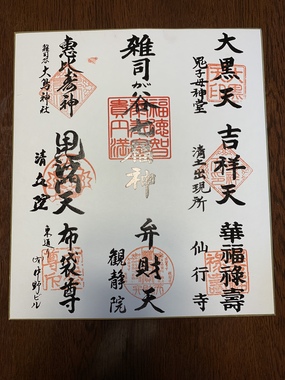 大黒天
鬼子母神堂
吉祥天
清土出現所
華福禄壽
仙行寺
雑司が谷七福神
弁財天
観静院
恵比寿神
雑司谷
大鳥神社
毘沙門天
清立院
布袋尊